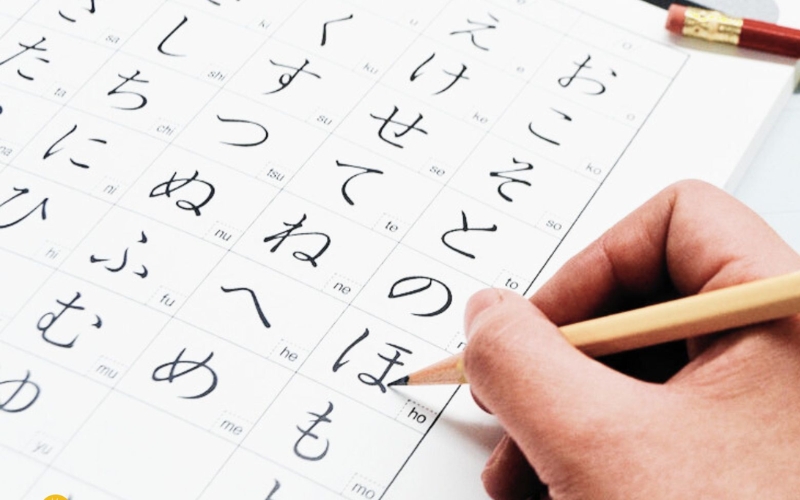 u え e お o
ki く ku け ke こ ko
さ sa し shi す su せ se そ so
た ta ち chi つ tsu て te と to
na に ni ぬ nu ね ne の
ひ hi ふ fu へ he ほ ho
む mu め me も mo
ゆ yu